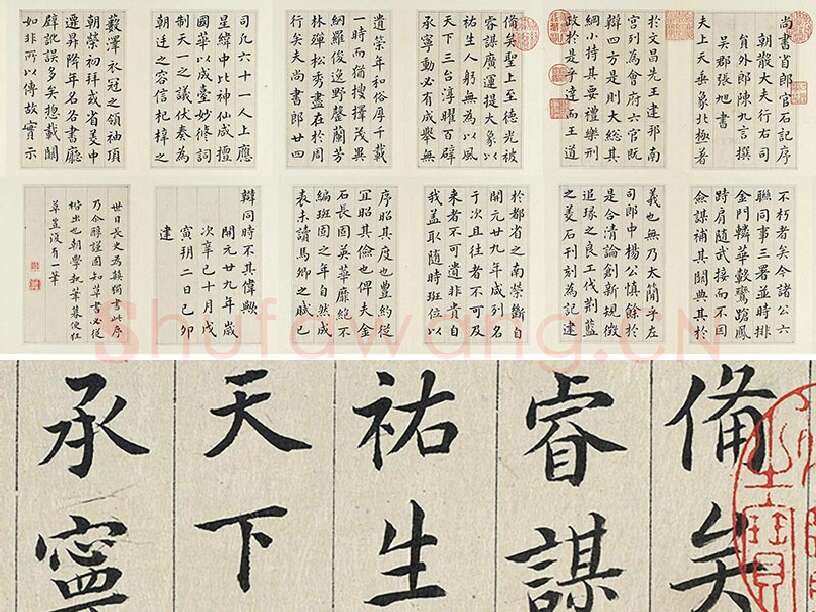 尚書省郎官石記序
朝散大夫行右司
員外郎陳九言撰
吳郡張旭書
夫上天垂象北極著
於文昌先王建邦南
宮列為會府六官既
辯四方是則大總其
綱小持其要禮樂刑
政於是乎達而王道
備矣聖上至德光被
睿謀廣運提大象以
祐生人躬無為以風
天下三台淳曜百辟
承寧動必有成舉無
遺策年和俗厚千載
一時而猶搜擇茂異
網羅俊逸野罄蘭芳
林殫松秀盡在於周
行矣夫尚書郎廿四
司凡六十一人上應
星緯中比神仙咸擅
國華以成臺妙修詞
制天一之議伏奏為
朝廷之容信杞梓之
藪澤衣冠之領袖頂
朝榮初拜或省美中
遷昇降年名各書廳
壁訛誤多矣揔載闕
如非所以傳故實示
不朽者矣今諸公六
聯同事三署並時排
金門轔華轂鸞蹌鳳
跱肩隨武接而不因
僉謀補其闕典其於
義也無乃太簡乎左
司郎中楊公慎餘於
是合清論創新規徵
追琢之良工伐荊藍
之美石刊刻為記建
於都省之南榮斷自
開元廿九年咸列名
于次且往者不可及
來者不可遺非貴自
我蓋取隨時班位以
序昭其度也豐約從
宜昭其儉也俾夫金
石長固英華靡絕不
編班固之年自然成
表未讀馬卿之賦已
辯同時不其偉歟
開元廿九年歲
次辛巳十月戊
寅朔二日己卯
建
世目長史為顛獨書此序
乃尔醇謹固知草書必從
楷出也朝學執筆暮便狂
草豈復有一筆
Shufawang.CN
備矣
睿謀
祐生
天下
承寧